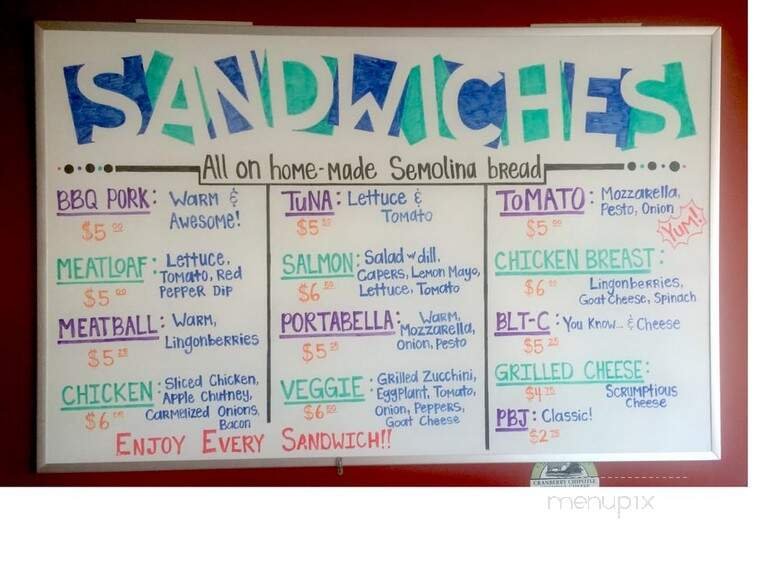 SANDWICHES
All on home-made Semolina bread
BBQ PORK: WARM &
Awesome!
$5
MEATLOAF: Lettuce,
Tomato, Red
Pepper Dip
$5
MEATBALL: WARM,
Lingonberries
$5 25
CHICKEN: Sliced Chicken,
Apple Chutney,
Carmelized Onions,
Bacon
$6
TUNA: Lettuce &
Tomato
$5
SALMON: Salad w dill,
Capers, Lemon Mayo,
Lettuce, Tomato
$6
PORTABELLA: Warm,
Mozzarella,
Onion, Pesto
$5 25
VEGGIE: Grilled Zucchini,
Eggplant, Tomato,
Onion, Peppers,
Goat Cheese
$6
TOMATO: Mozzarella,
Pesto, Onion
$5
YUM!
CHICKEN BREAST:
$6
Lingonberries,
Goat Cheese, Spinach
BLT-C: You Know... & Cheese
$5 25
GRILLED CHEESE:
$4
SCRUMPTIOUS
Cheese
PBJ: Classic!
$2 75
ENJOY EVERY SANDWICH!!
CRANBERRY CHIPOTLE
menupix